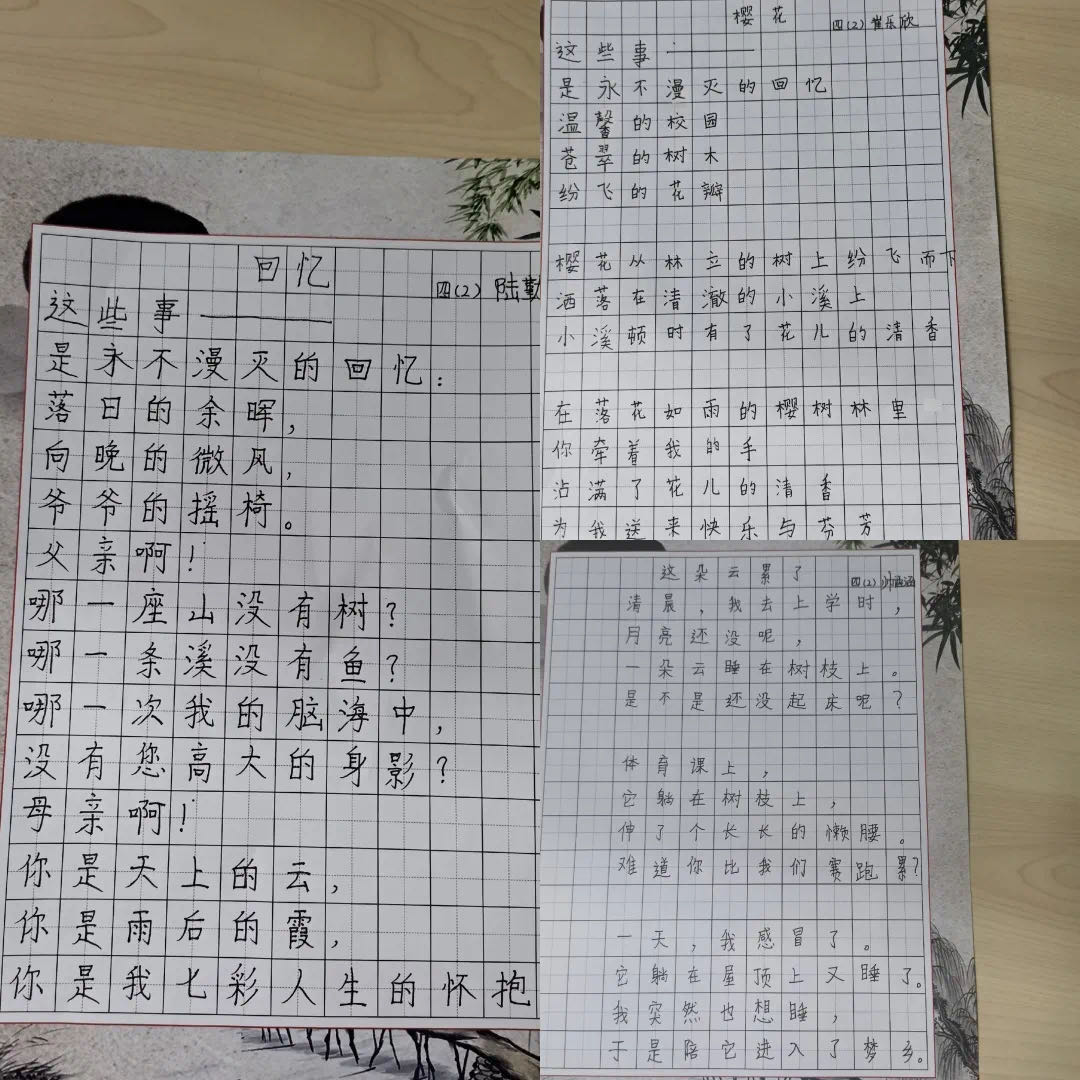 回忆
四(2) 陆勤
这些事————
是永不漫灭的回忆：
落日的余晖，
向晚的微风，
爷爷的摇椅。
父亲啊！
哪一座山没有树？
哪一条溪没有鱼？
哪一次我的脑海中，
没有您高大的身影？
母亲啊！
你是天上的云，
你是雨后的霞，
你是我七彩人生的怀抱
樱花
四(2) 崔乐欣
这些事————
是永不漫灭的回忆
温馨的校园
苍翠的树木
纷飞的花瓣
樱花从林立的树上纷飞而下
洒落在清澈的小溪上
小溪顿时有了花儿的清香
在落花如雨的樱树林里
你牵着我的手
沾满了花儿的清香
为我送来快乐与芬芳
这朵云累了
四(2)
清晨，我去上学时，
月亮还没呢，
一朵云睡在树枝上。
是不是还没起床呢？
体育课上，
它躺在树枝上，
伸了个长长的懒腰。
难道你比我们赛跑累？
一天，我感冒了。
它躺在屋顶上又睡了。
我突然也想睡，
于是陪它进入了梦乡。